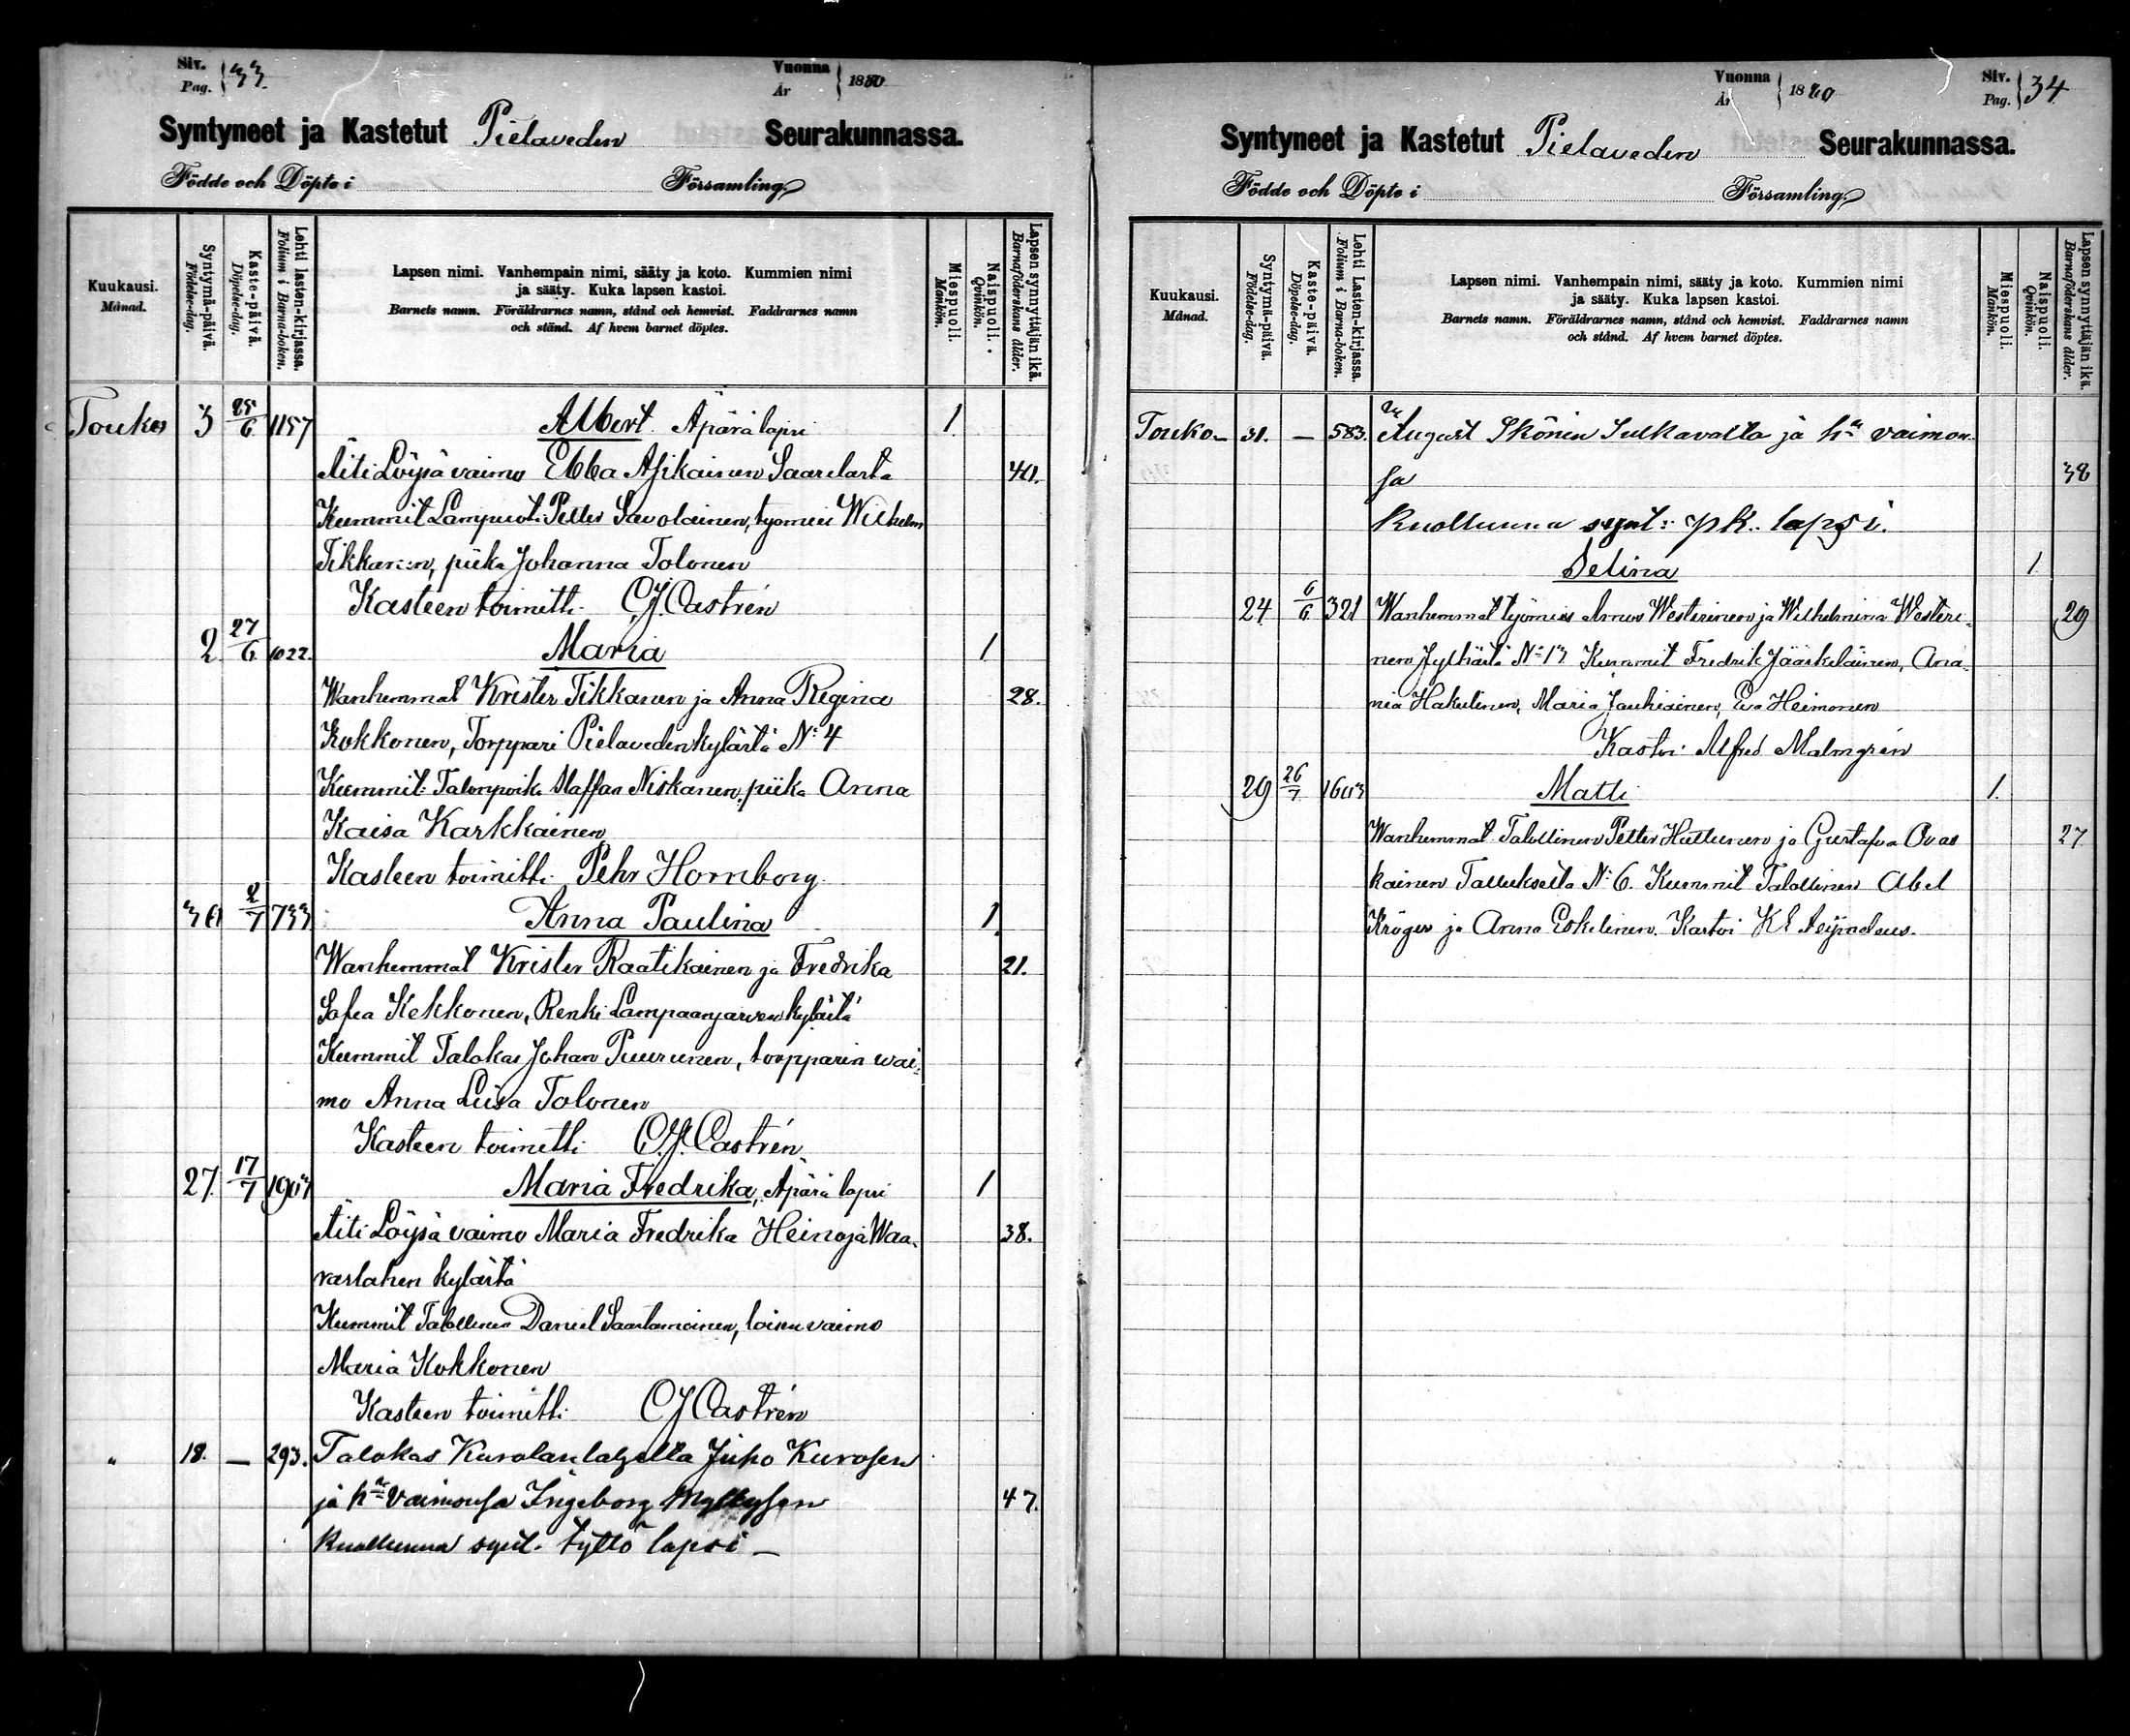 Siv. Pag. 33.
Vuonna År 1880
Syntyneet ja Kastetut Pielaveden Seurakunnassa.
Födde och Döpte i Församling.
Kuukausi. Månad.
Syntymä-päivä. Födelse-dag.
Kaste-päivä. Döpelse-dag.
Lehti lasten-kirjassa. Folium i Barna-boken.
Lapsen nimi. Vanhempain nimi, sääty ja koto. Kummien nimi
ja sääty. Kuka lapsen kastoi.
Barnets namn. Föräldrarnes namn, stånd och hemvist. Faddrarnes namn
och stånd. Af hvem barnet döptes.
Miespuoli. Mankön.
Naispuoli. Qvinkön.
Lapsen synnyttäjän ikä. Barnaföderskans ålder.
Touko 3 25/6 1157 Albert. Äpärä lapsi 1.
Äiti Löysä vaimo Ebba Asikainen Saarelasta 40.
Kummit Lampuoti Petter Savolainen, työmies Wilhelm
Tikkanen, piika Johanna Tolonen
Kasteen toimitti C.J. Castrén
2 27/6 1022. Maria 1
Wanhemmat Krister Tikkanen ja Anna Regina 28.
Kokkonen, Torppari Pielaveden kylästä No 4
Kummit: Talonpoika Staffan Niskanen, piika Anna
Kaisa Karkkainen
Kasteen toimitti Pehr Hornborg.
30 2/7 733 Anna Paulina 1
Wanhemmat Krister Raatikainen ja Fredrika 21.
Sofia Kekkonen, Renki Lampaanjärven kylästä
Kummit Talokas Johan Puurunen, torpparin wai-
mo Anna Liisa Tolonen
Kasteen toimitti C.J. Castrén
27. 17/7 1903 Maria Fredrika, Äpärä lapsi 1
Äiti Löysä vaimo Maria Fredrika Heinoja Waa- 38.
raslahen kylästä
Kummit Talollinen Daniel Saastamoinen, loisen vaimo
Maria Kokkonen
Kasteen toimitti C J Castrén
" 18. — 293. Talokas Kurolanlahelta Juho Kurosen
ja hn vaimonsa Ingeborg Myllysen 47.
Kuollunna synt. tyttö lapsi —
Vuonna År 1880
Siv. Pag. 34
Syntyneet ja Kastetut Pielaveden Seurakunnassa.
Födde och Döpte i Församling.
Kuukausi. Månad.
Syntymä-päivä. Födelse-dag.
Kaste-päivä. Döpelse-dag.
Lehti Lasten-kirjassa. Folium i Barna-boken.
Lapsen nimi. Vanhempain nimi, sääty ja koto. Kummien nimi
ja sääty. Kuka lapsen kastoi.
Barnets namn. Föräldrarnes namn, stånd och hemvist. Faddrarnes namn
och stånd. Af hvem barnet döptes.
Miespuoli. Mankön.
Naispuoli. Qvinkön.
Lapsen synnyttäjän ikä. Barnaföderskans ålder.
Touko- 31. — 583. August Skönin Sulkavalta ja hn vaimon-
sa 38
Kuollunna synt: pk. lapsi.
Selina 1
24 6/6 321 Wanhemmat työmies Westerinen ja Wilhelmina Westeri- 29
nen Jylhästä No 13 Kummit Fredrik Jääskeläinen, Ana-
nia Hakulinen, Maria Jauhiainen, Eva Heimonen
Kastoi Alfred Malmgrén
29 26/7 1603 Matti 1.
Wanhemmat Talollinen Petter Huttunen ja Gustafva Ovas 27
kainen Tallukselta No 6. Kummit Talollinen Abel
Kröger ja Anna Eskelinen. Kastoi